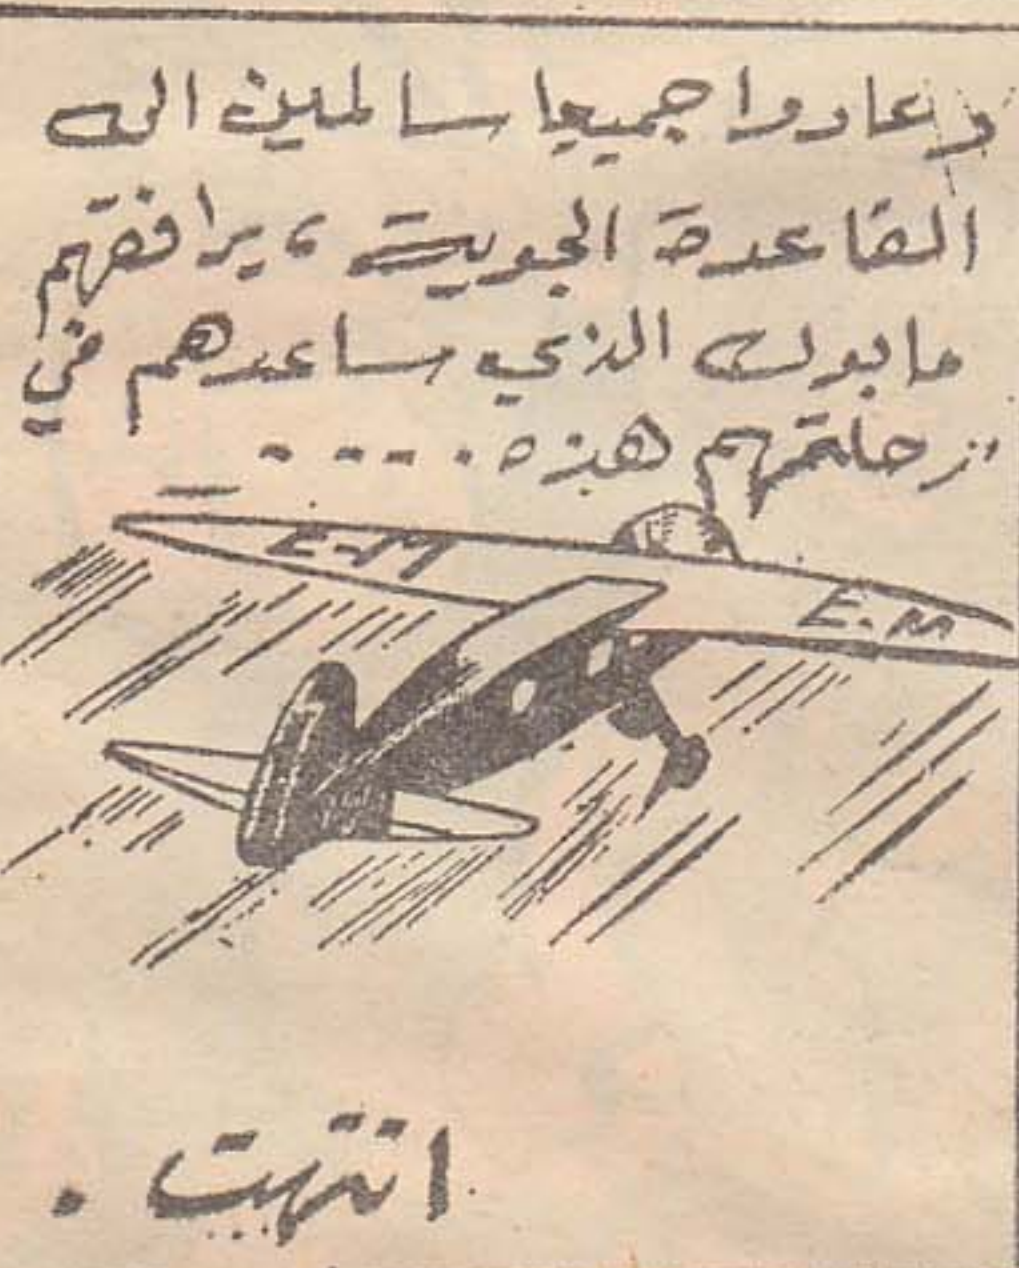 وعادوا جميعا سالمين الى
القاعدة الجوية، يرافقهم
مابوك الذي ساعدهم في
رحلتهم هذه.....
E-M
E.M
انتهت.